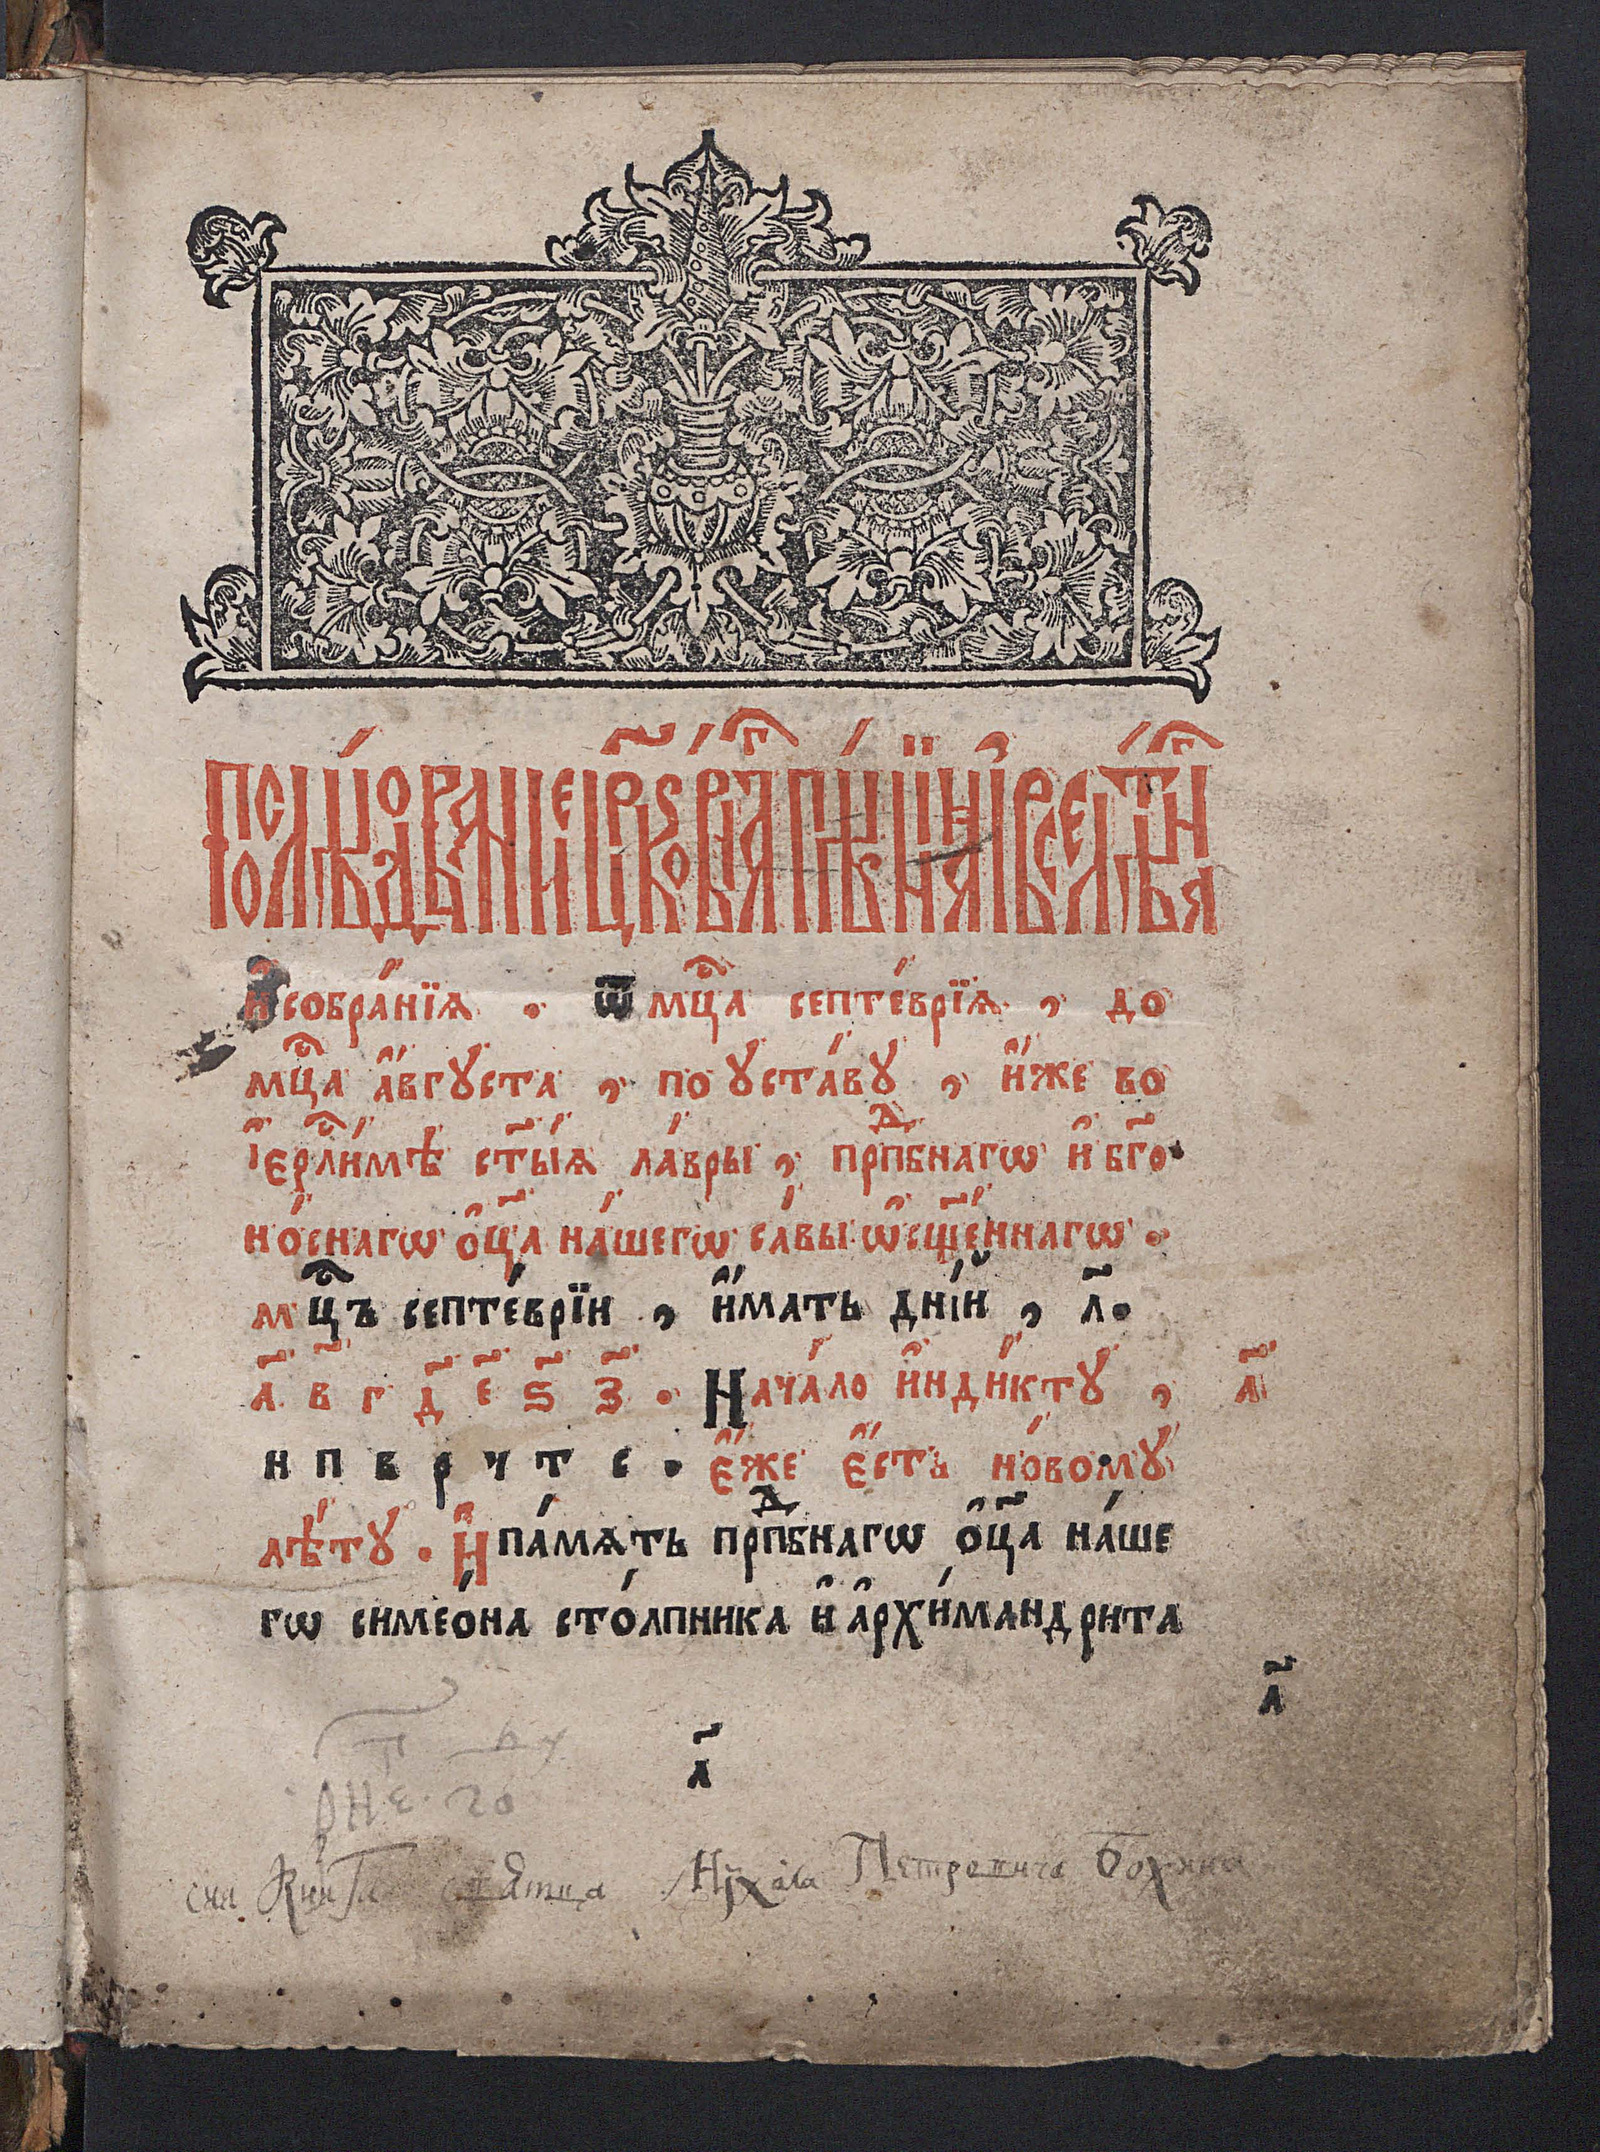 Послѣдованїе црко́внагѡ пѣ́нїѧ и҆ вселѣ́тнагѡ
и҆ собра́нїѧ . ѿ мцⷭ҇а септе́врїѧ , до
мцⷭ҇а а҆́вгꙋста , по ꙋста́вꙋ , и҆́же во
і҆ерⷭ҇ли́мѣ ст҃ы́ѧ ла́вры , прпⷣбнагѡ и҆ бг҃о
но́снагѡ ѻ҆ц҃а на́шегѡ са́вы ѡ҆сщ҃е́ннагѡ .
мцⷭ҇ъ септе́врїи , и҆́мать дні́й , л҃ .
а҃ в҃ г҃ д҃ є҃ ѕ҃ з҃ . Нача́ло и҆нди́ктꙋ , а҃
н п в р ч т с . є҆́же є҆́сть но́вомꙋ
лѣ́тꙋ . И҆ па́мѧть прпⷣбнагѡ ѻ҆ц҃а на́ше
гѡ симео́на сто́лпника и҆ а҆рхи́мандрита
а҃
а҃
сиа Книга святца Михаила Петровича